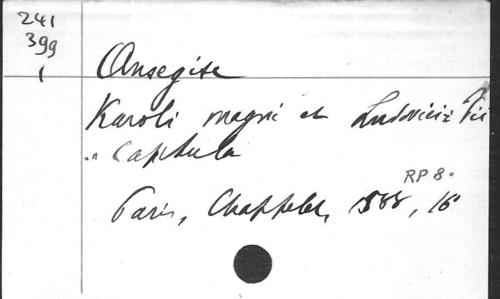 241
399
1
Ansegise
Karoli magni et Ludovici Pii
.. Capitula
RP 8°
Paris, Chappelet, 1588, 16°